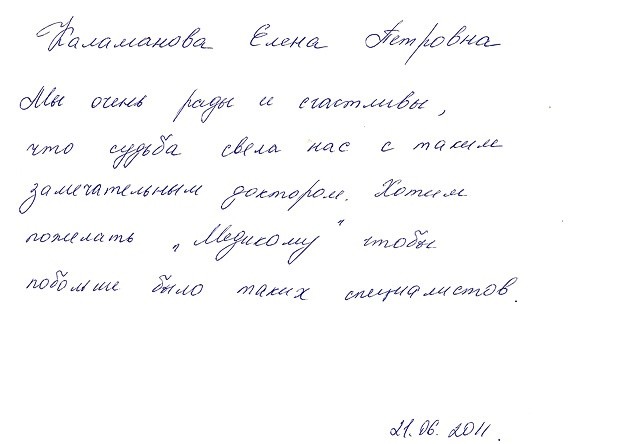 Каламанова Елена Петровна
Мы очень рады и счастливы,
что судьба свела нас с таким
замечательным доктором. Хотим
пожелать „Медикому" чтобы
побольше было таких специалистов.
21.06.2011.